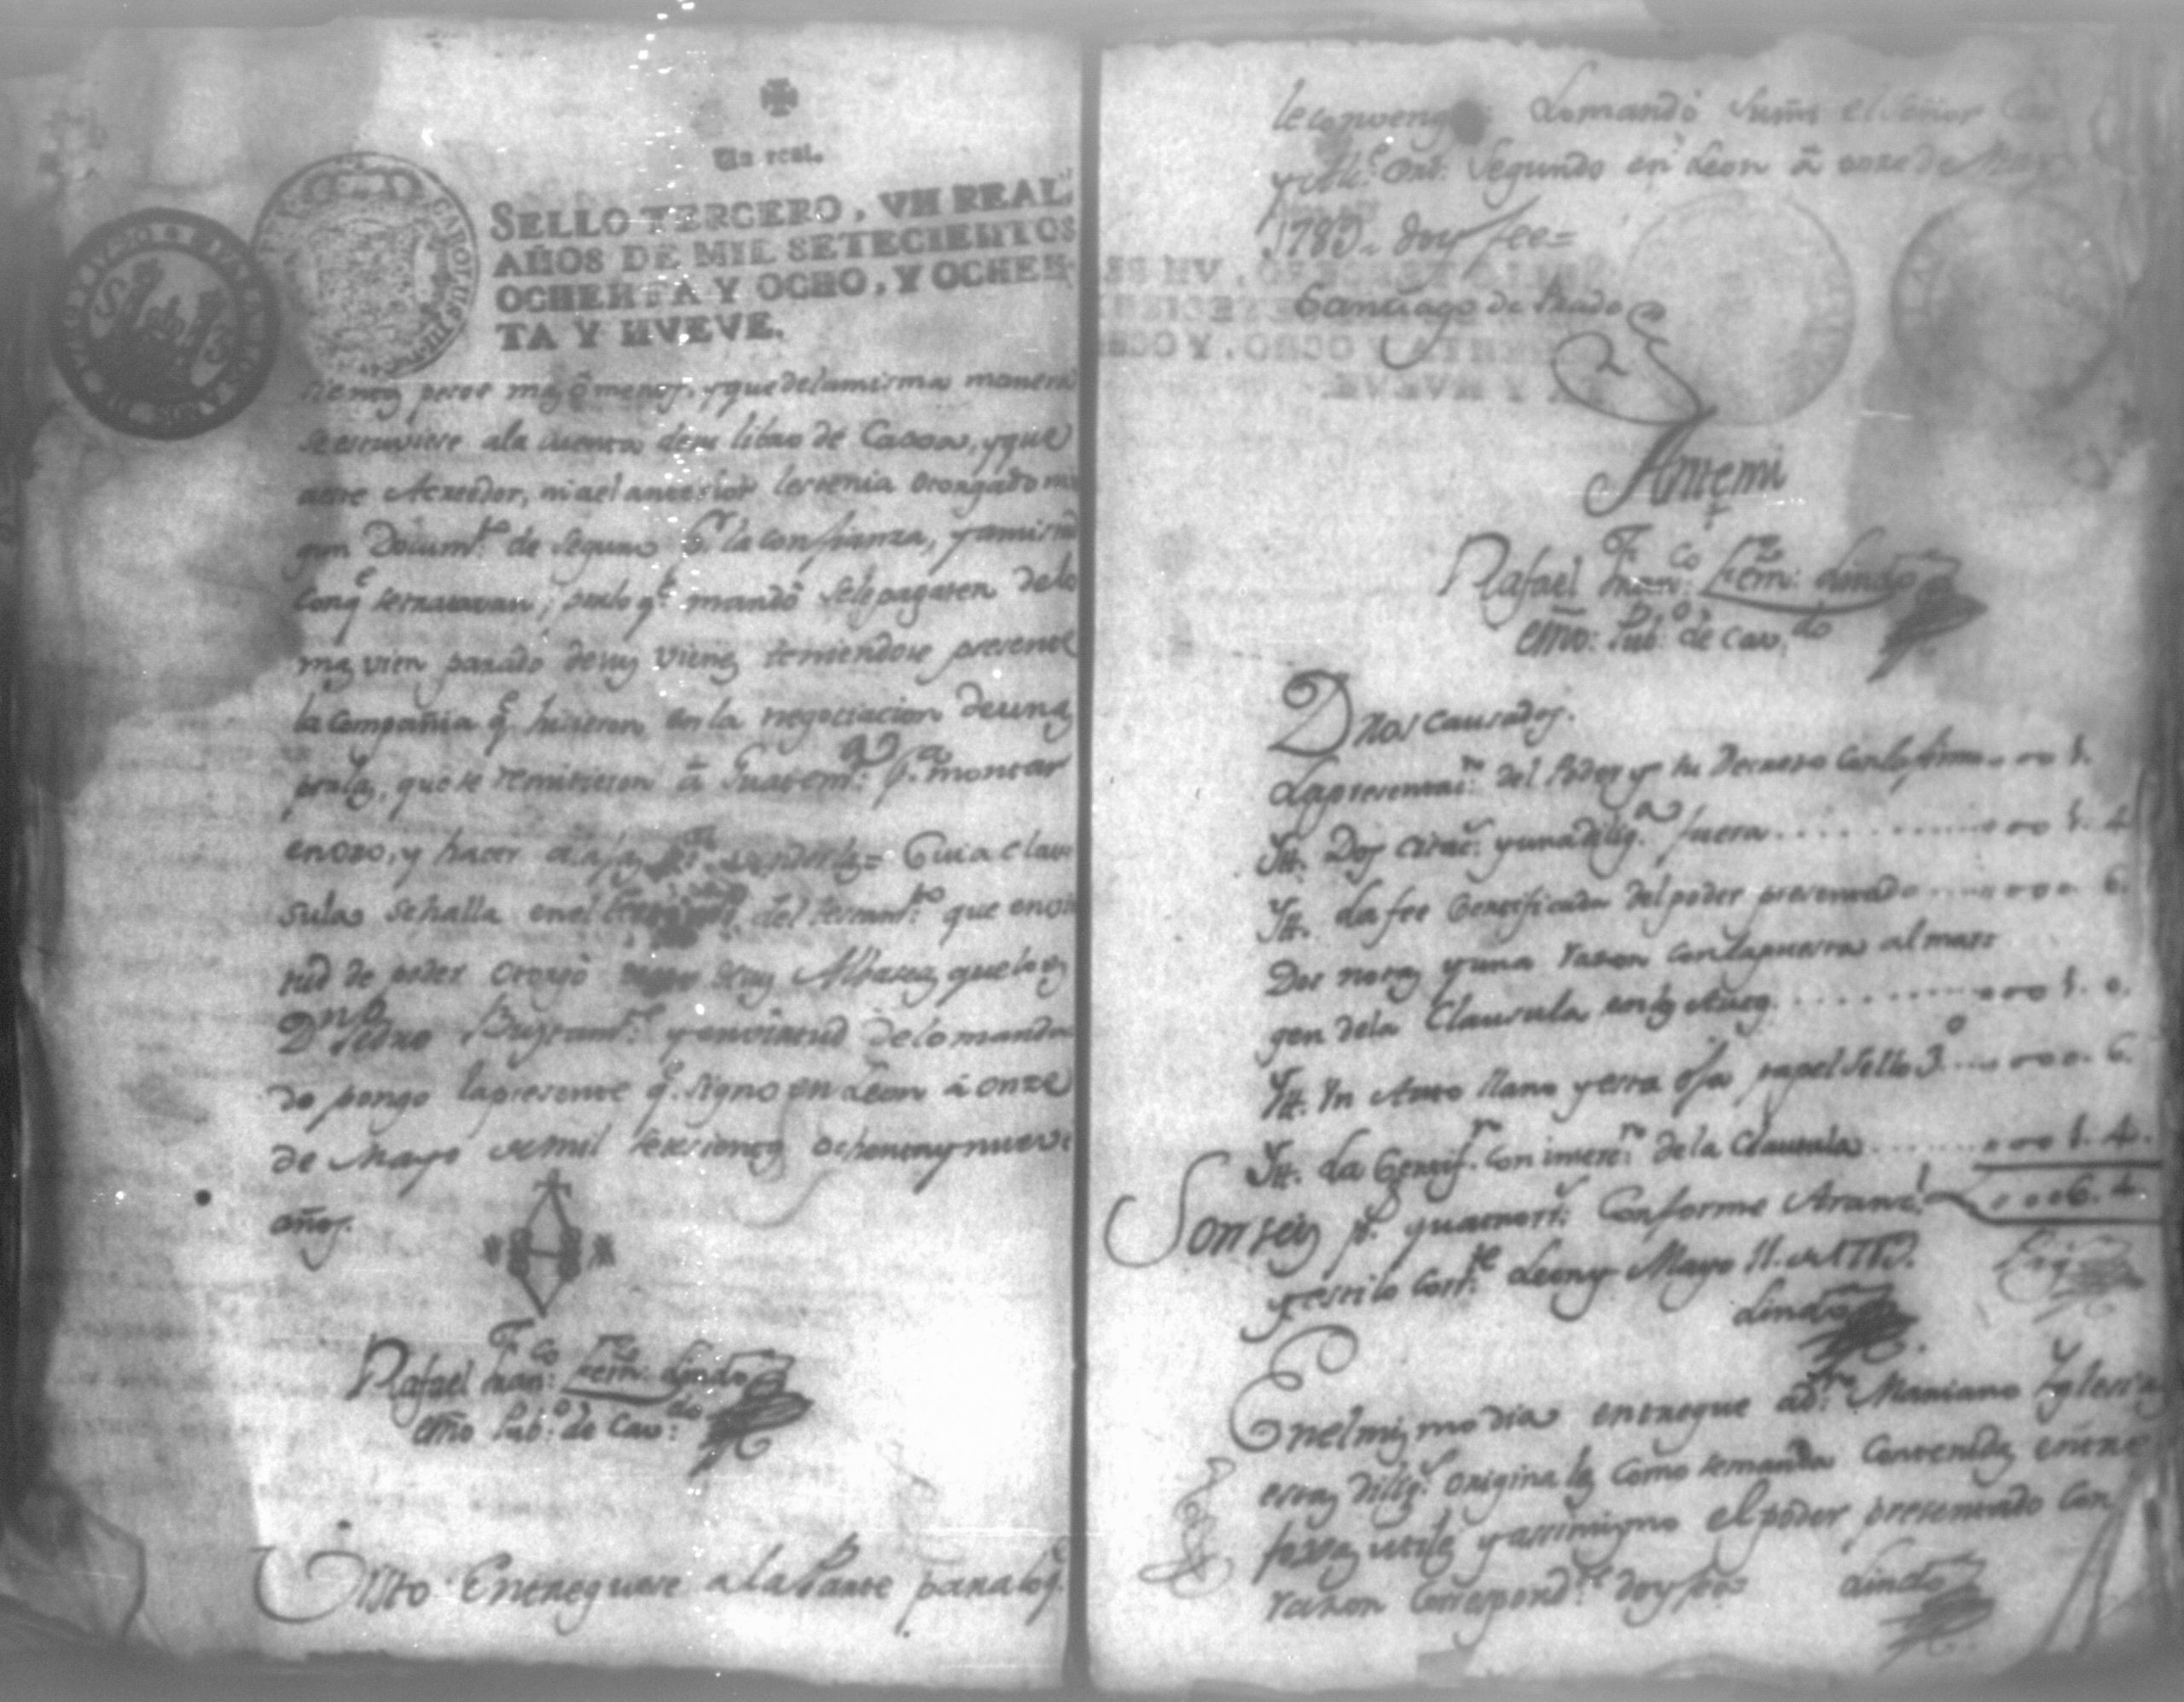 Un real.
SELLO TERCERO, VN REAL
AÑOS DE MIL SETECIENTOS
OCHENTA Y OCHO, Y OCHEN-
TA Y NVEVE.
pesos mas ô menos, y que de la misma manera
se estuviere ala cuenta de su libro de Caxa, y que
aeste Acreedor, ni ael anterior les tenia otorgado nin
gun Docum.to de seguro p.r la confianza, y amistad
conq.e se tratavan; por lo q.e mandô se les pagasen delo
mas vien parado de sus vienes teniendose presente
la compañia q.e hisieron en la negociacion de unas
perlas, que se remitieron â Guatem.a p.a montar
en oro, y hacer alajas venderlas = Cuia clau
sula se halla en el del testam.to que en vir
tud de poder otorgò Albacea que lo es
D.n Pedro y en virtud de lo manda
do pongo la presente q.e signo en Leon â onze
de Mayo de mil setesientos ochenta y nueve
años.
Rafael Fran.co Fern.z Lindo
esno Pub.o de Cav.do
Visto: Entreguese a la Parte para los q.e
le convenga: Lo mandò el Señor
y Alc.e Ord.o Segundo en Leon â onze de Mayo
1789. doy fee=
Santiago de Prado
Antemi
Rafael Fran.co Fern.z Lindo
esno: Pub.o de Cav.do
Dros causados.
La presentaz.n del Poder y su Decreto con la firma 1.
Ytt. Dos citac.s y una dilig.a fuera 1. 4
Ytt. La fee Certificada del poder presentado 6.
Dos notas y una razon con la puesta al mar
gen dela Clausula en los Autos 1. 0.
Ytt. Un Auto llano y esta oja papel sello 3.o 6.
Ytt. La Certif.n con inserc.n de la Clausula 1. 4.
Son seis p.s quatro r.s Conforme Aranc.l 6. 4
y estilo corr.te Leon y Mayo 11. de 1789.
Lindo
En el mismo dia entregue a D.n Mariano Yglesias
estas dilig.s originales como se manda contenidas en tres
foxas utiles y assimismo el poder presentado con
razon correspond.te doy fee Lindo